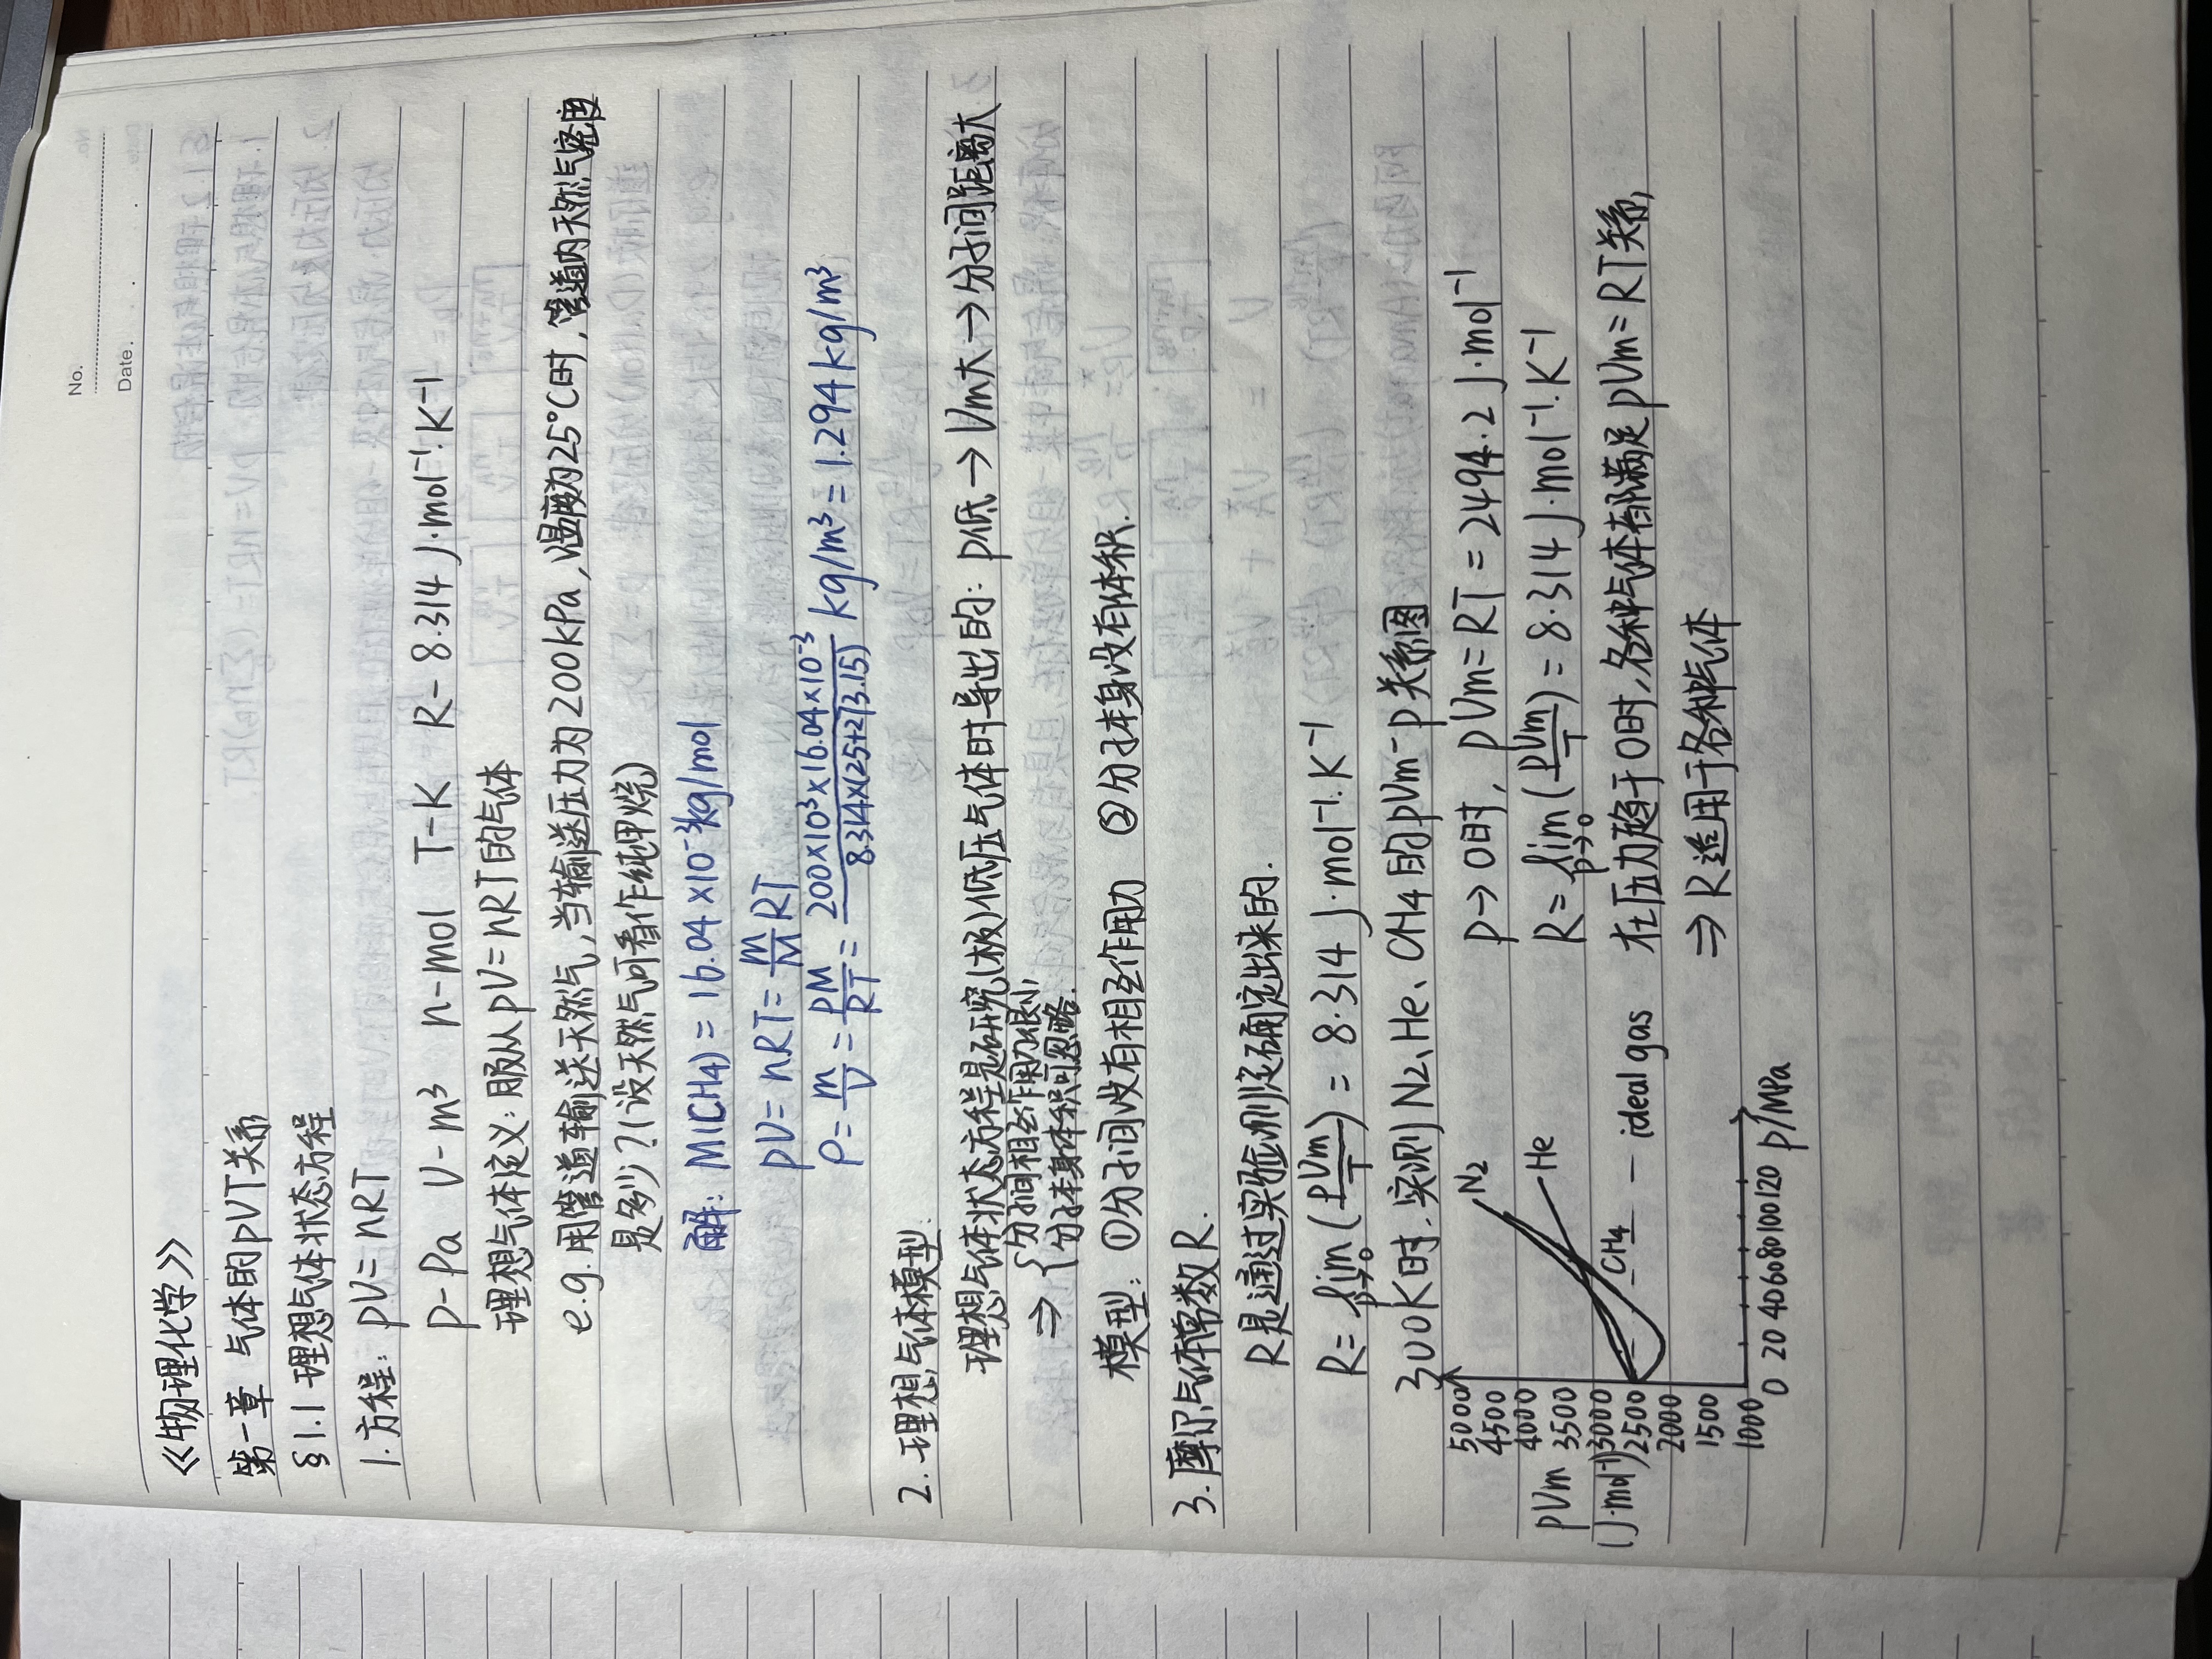 No.
Date.
《物理化学》
第一章 气体的pVT关系
§1.1 理想气体状态方程
1.方程: pV=nRT
p-Pa V-m³ n-mol T-K R-8.314 J·mol⁻¹·K⁻¹
理想气体定义:服从pV=nRT的气体
e.g.用管道输送天然气,当输送压力为200kPa,温度为25°C时,管道内天然气密度
是多少?(设天然气可看作纯甲烷)
解: M(CH₄)=16.04×10⁻³kg/mol
pV=nRT=m/M RT
ρ=m/V=pM/RT=200×10³×16.04×10⁻³/8.314×(25+273.15) kg/m³=1.294kg/m³
2.理想气体模型.
理想气体状态方程是研究(极)低压气体时导出的: p低→Vm大→分子间距离大
⇒{分子间相互作用力很小,
分子本身体积可忽略.
模型: ①分子间没有相互作用力 ②分子本身没有体积.
3.摩尔气体常数R.
R是通过实验测定确定出来的.
R=lim p→0 (pVm/T)=8.314 J·mol⁻¹·K⁻¹
300K时.实测N₂、He、CH₄的pVm-p关系图
5000
4500
4000
3500
3000
2500
2000
1500
1000
pVm
(J·mol⁻¹)
N₂
He
CH₄
ideal gas
0 20 40 60 80 100 120 p/MPa
p→0时, pVm=RT=2494.2 J·mol⁻¹
R=lim p→0 (pVm/T)=8.314 J·mol⁻¹·K⁻¹
在压力趋于0时,各种气体都满足pVm=RT关系,
⇒R适用于各种气体